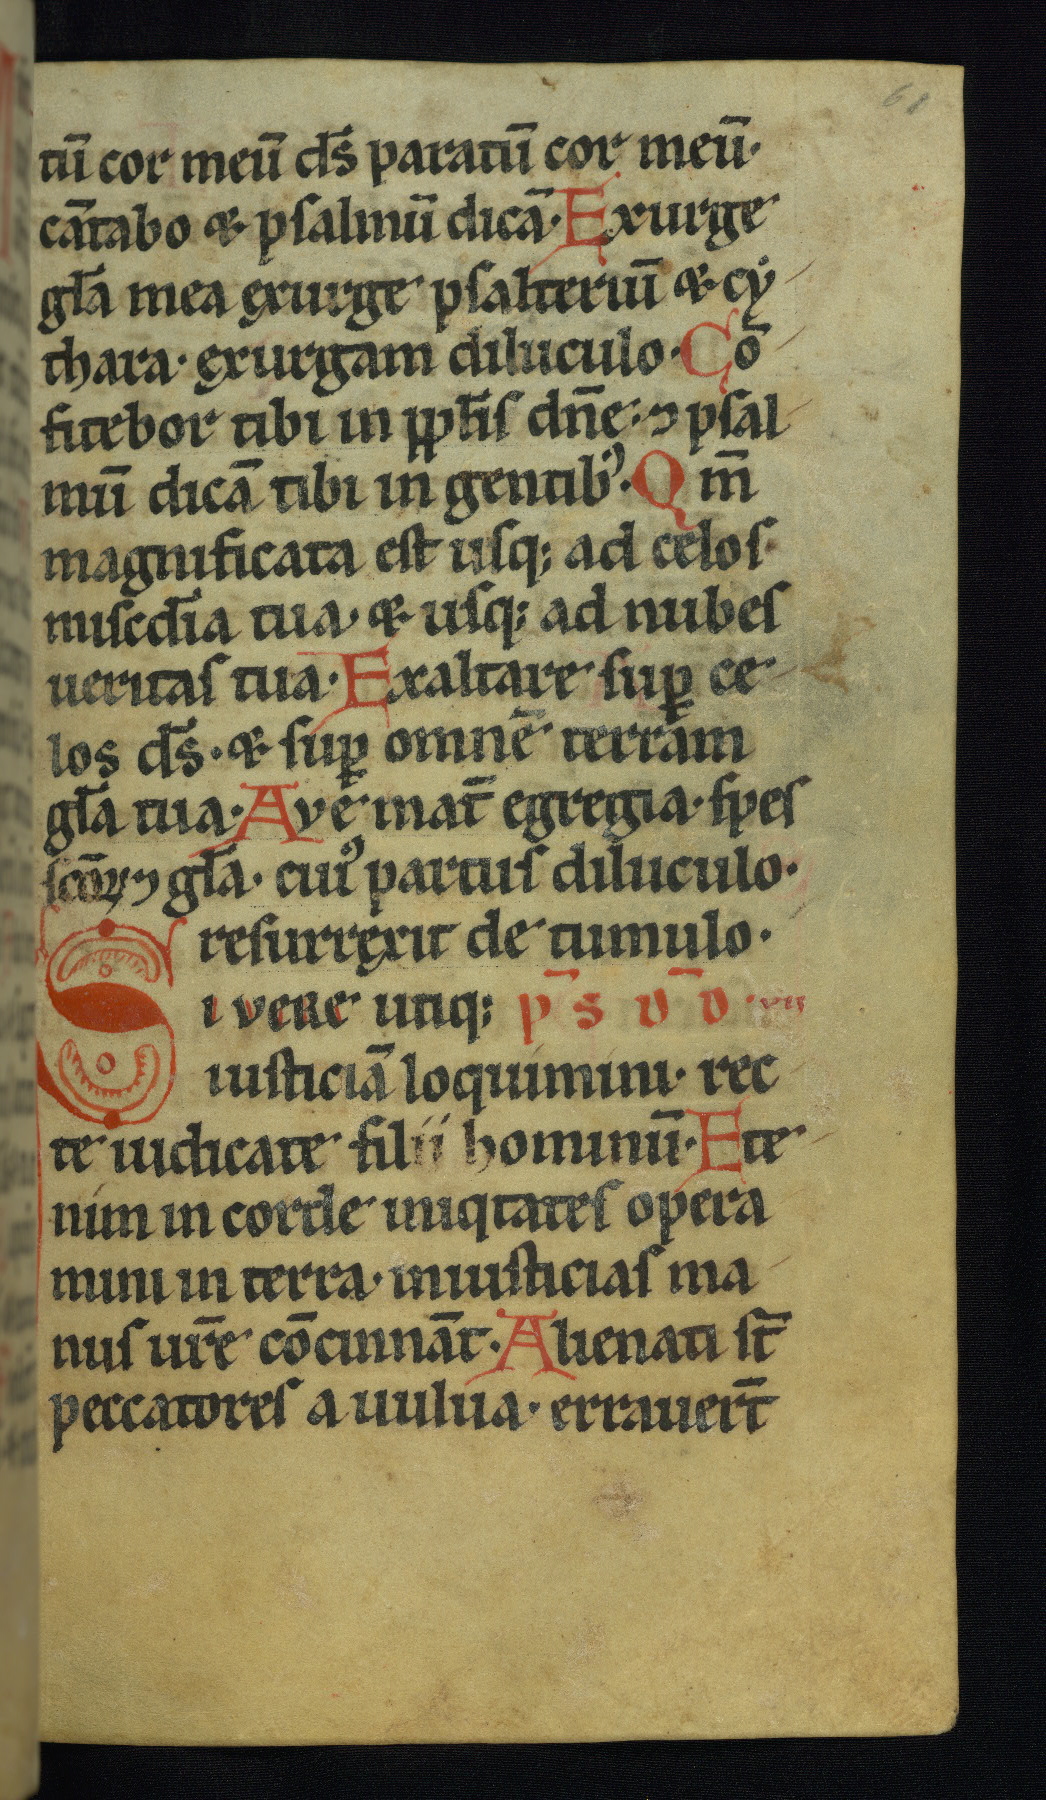 68
tū cor meū ds̄ paratū cor meū·
cātabo & psalmū dicā· Exurge
gl̄a mea exurge psalteriū & cy
thara· exurgam diluculo· Cō
fitebor tibi in pp̄lis dn̄e· ⁊ psal
mū dicā tibi in gentibꝰ· Qm̄
magnificata est usq; ad celos
misc̄dia tua· & usq; ad nubes
ueritas tua· Exaltare suꝑ ce
los ds̄· & suꝑ omnē terram
gl̄a tua· Ave mat̄ egregia· spes
sc̄oꝝ ⁊ gl̄a· cuiꝰ partus diluculo·
resurrexit de tumulo·
Si vere utiq; p̄ s ū d ·vii
iusticiā loquimini· rec
te iudicate filii hominū· Ete
nim in corde iniqtates opera
mini in terra· iniusticias ma
nus ur̄e cōcinnāt· Alienati st̄
peccatores a uulua· errauert̄